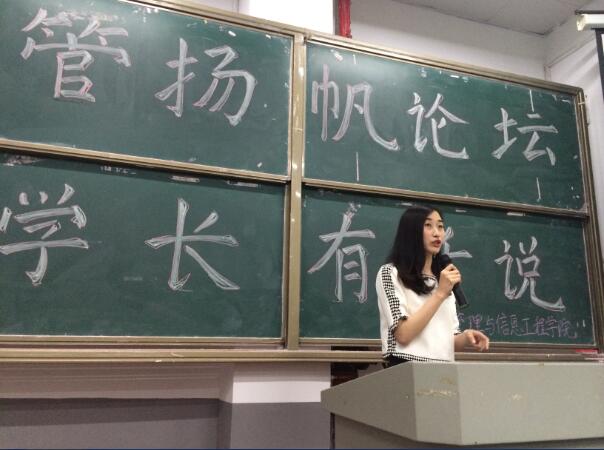 管扬帆论坛
学长有 说
理与信息工程学院